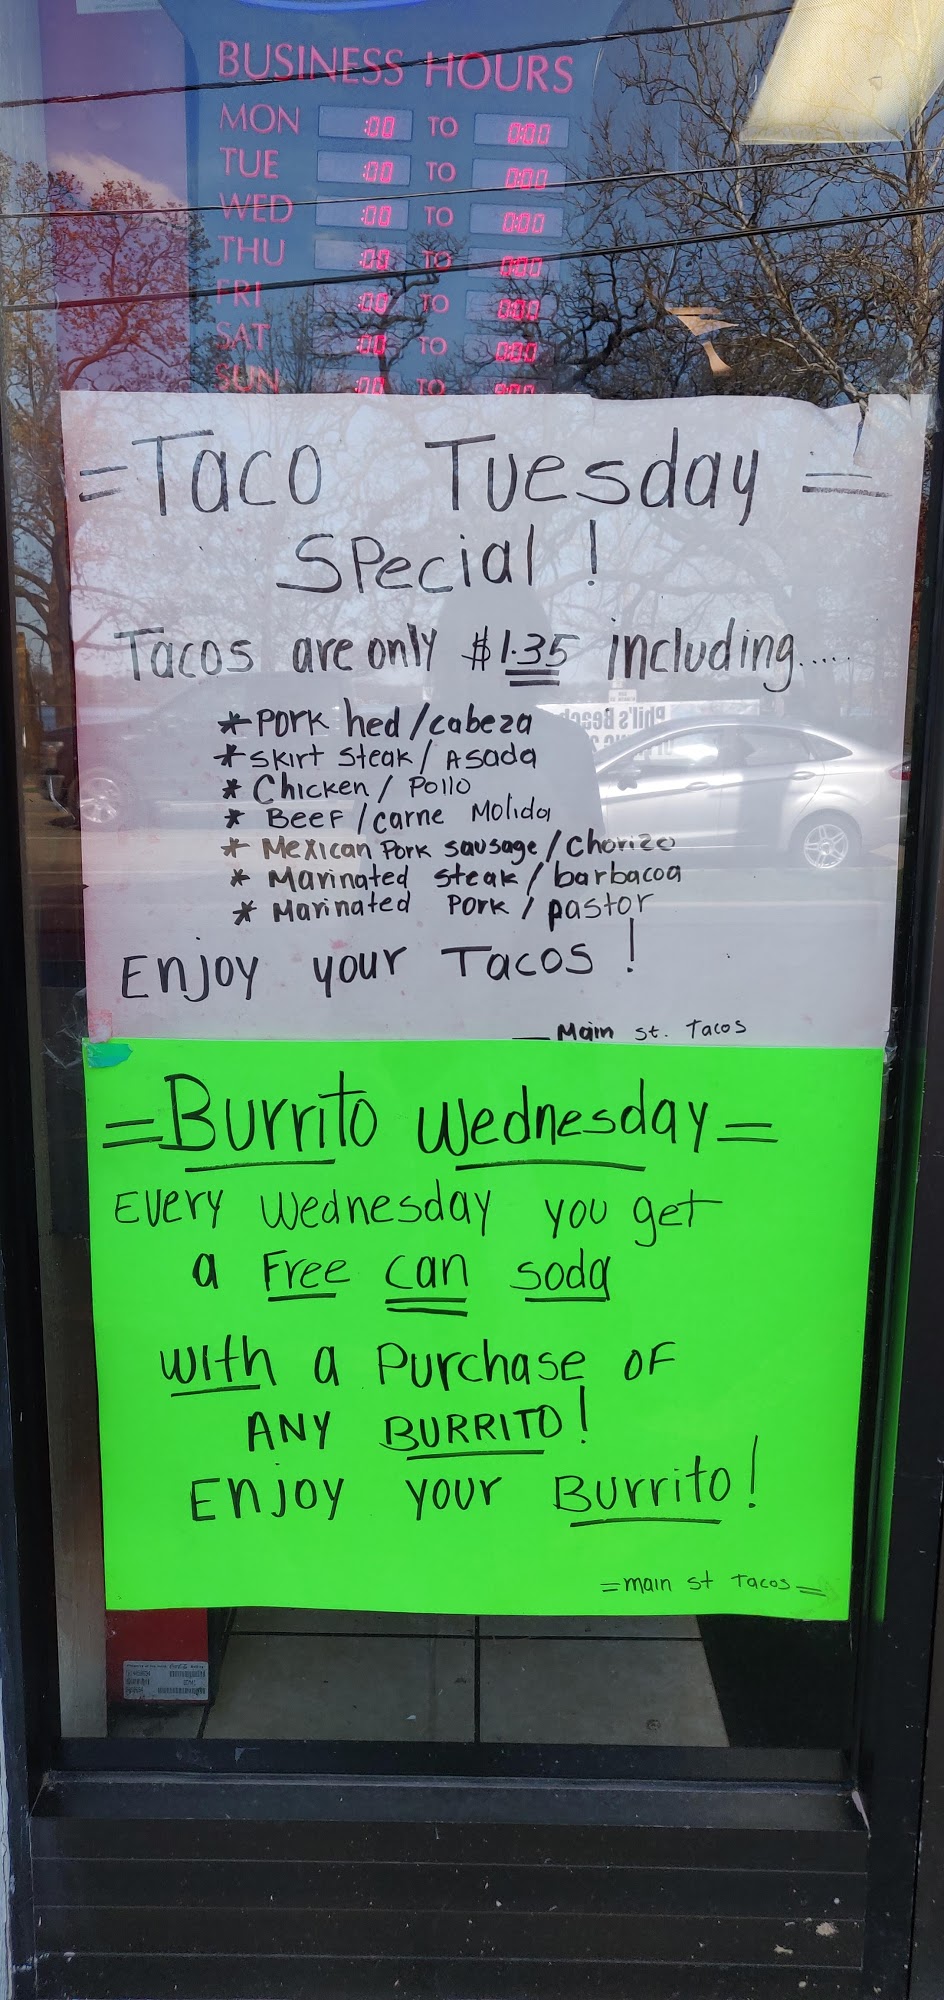 BUSINESS HOURS
MON :00 TO 0:00
TUE :00 TO 0:00
WED :00 TO 0:00
THU :00 TO 0:00
FRI :00 TO 0:00
SAT :00 TO 0:00
SUN :00 TO 0:00
=Taco Tuesday=
Special !
Tacos are only $1.35 including.....
* Pork hed/cabeza
* Skirt Steak/Asada
* Chicken/Pollo
* BeeF/carne Molida
* Mexican Pork sausage/Chorizo
* Marinated steak/barbacoa
* Marinated Pork/pastor
Enjoy your Tacos !
_Main st. Tacos
=Burrito Wednesday=
Every Wednesday you get
a Free can soda
with a Purchase OF
ANY BURRITO!
Enjoy your Burrito!
=main st Tacos=
Phil's Beach